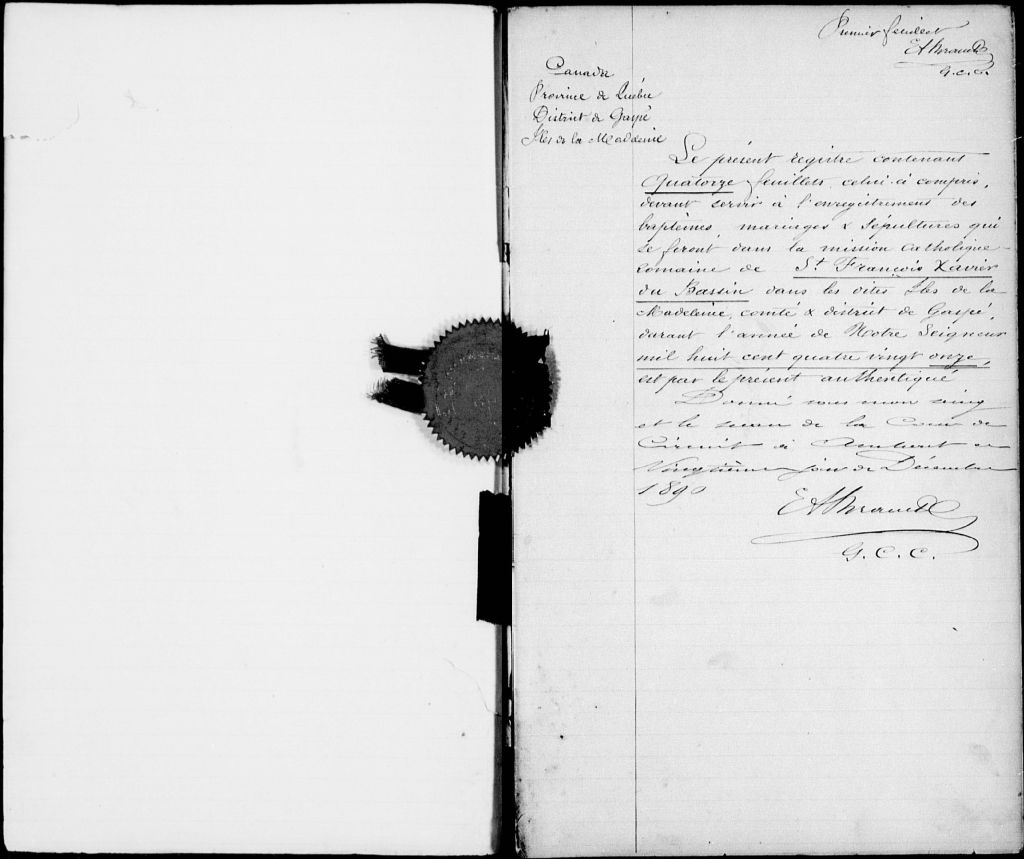 Premier feuillet
EABrault
G.C.C.
Canada
Province de Québec
District de Gaspé
Iles de la Madeleine
Le présent registre contenant
quatorze feuillets, celui-ci compris,
devant servir à l'enregistrement des
baptêmes, mariages & sépultures qui
se feront dans la mission catholique
romaine de St François Xavier
du Bassin dans les dites Iles de la
Madeleine, comté & district de Gaspé,
durant l'année de Notre Seigneur
mil huit cent quatre vingt onze,
est par le présent authentiqué
Donné sous mon seing
et le sceau de la Cour de
Circuit à Amherst ce
Vingtième jour de Décembre
1890
G.C.C.